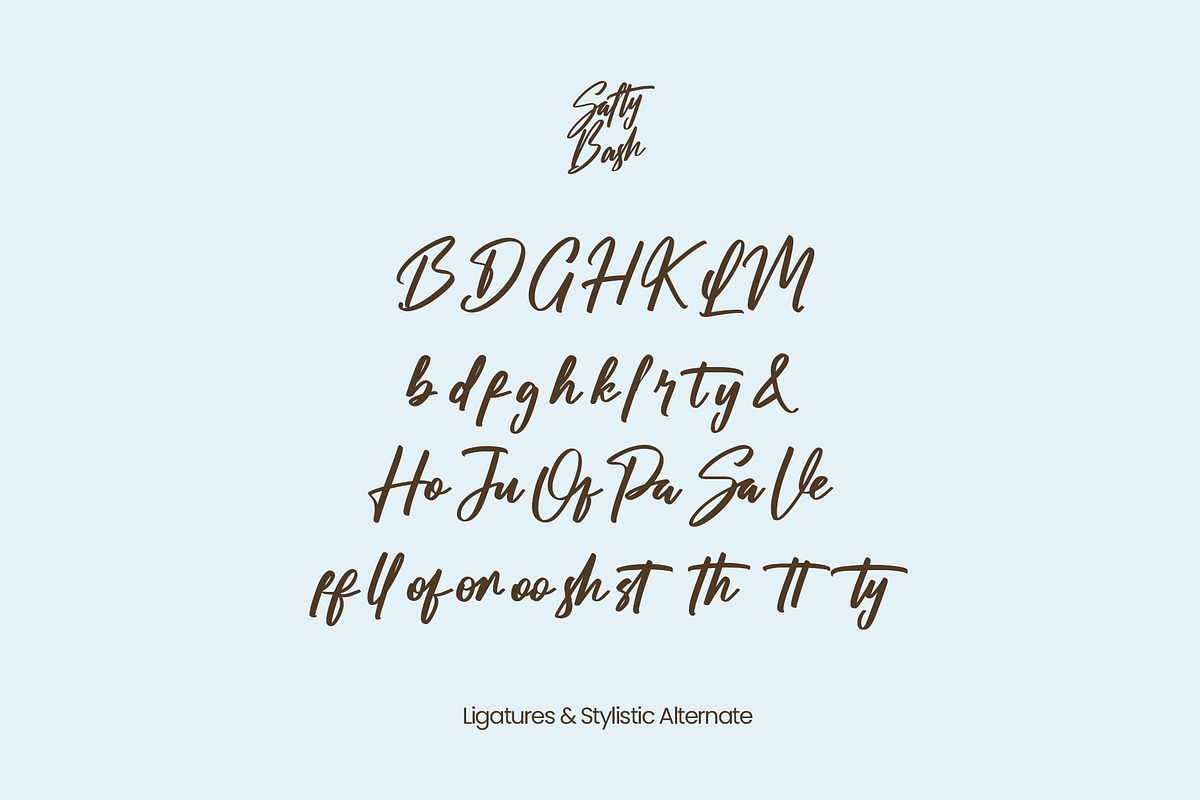 Salty
Bash
B D G H K L M
b d f g h k l r t y &
Ho Ju Of Pa Sa Ve
ff ll of on oo sh st th tt ty
Ligatures & Stylistic Alternate